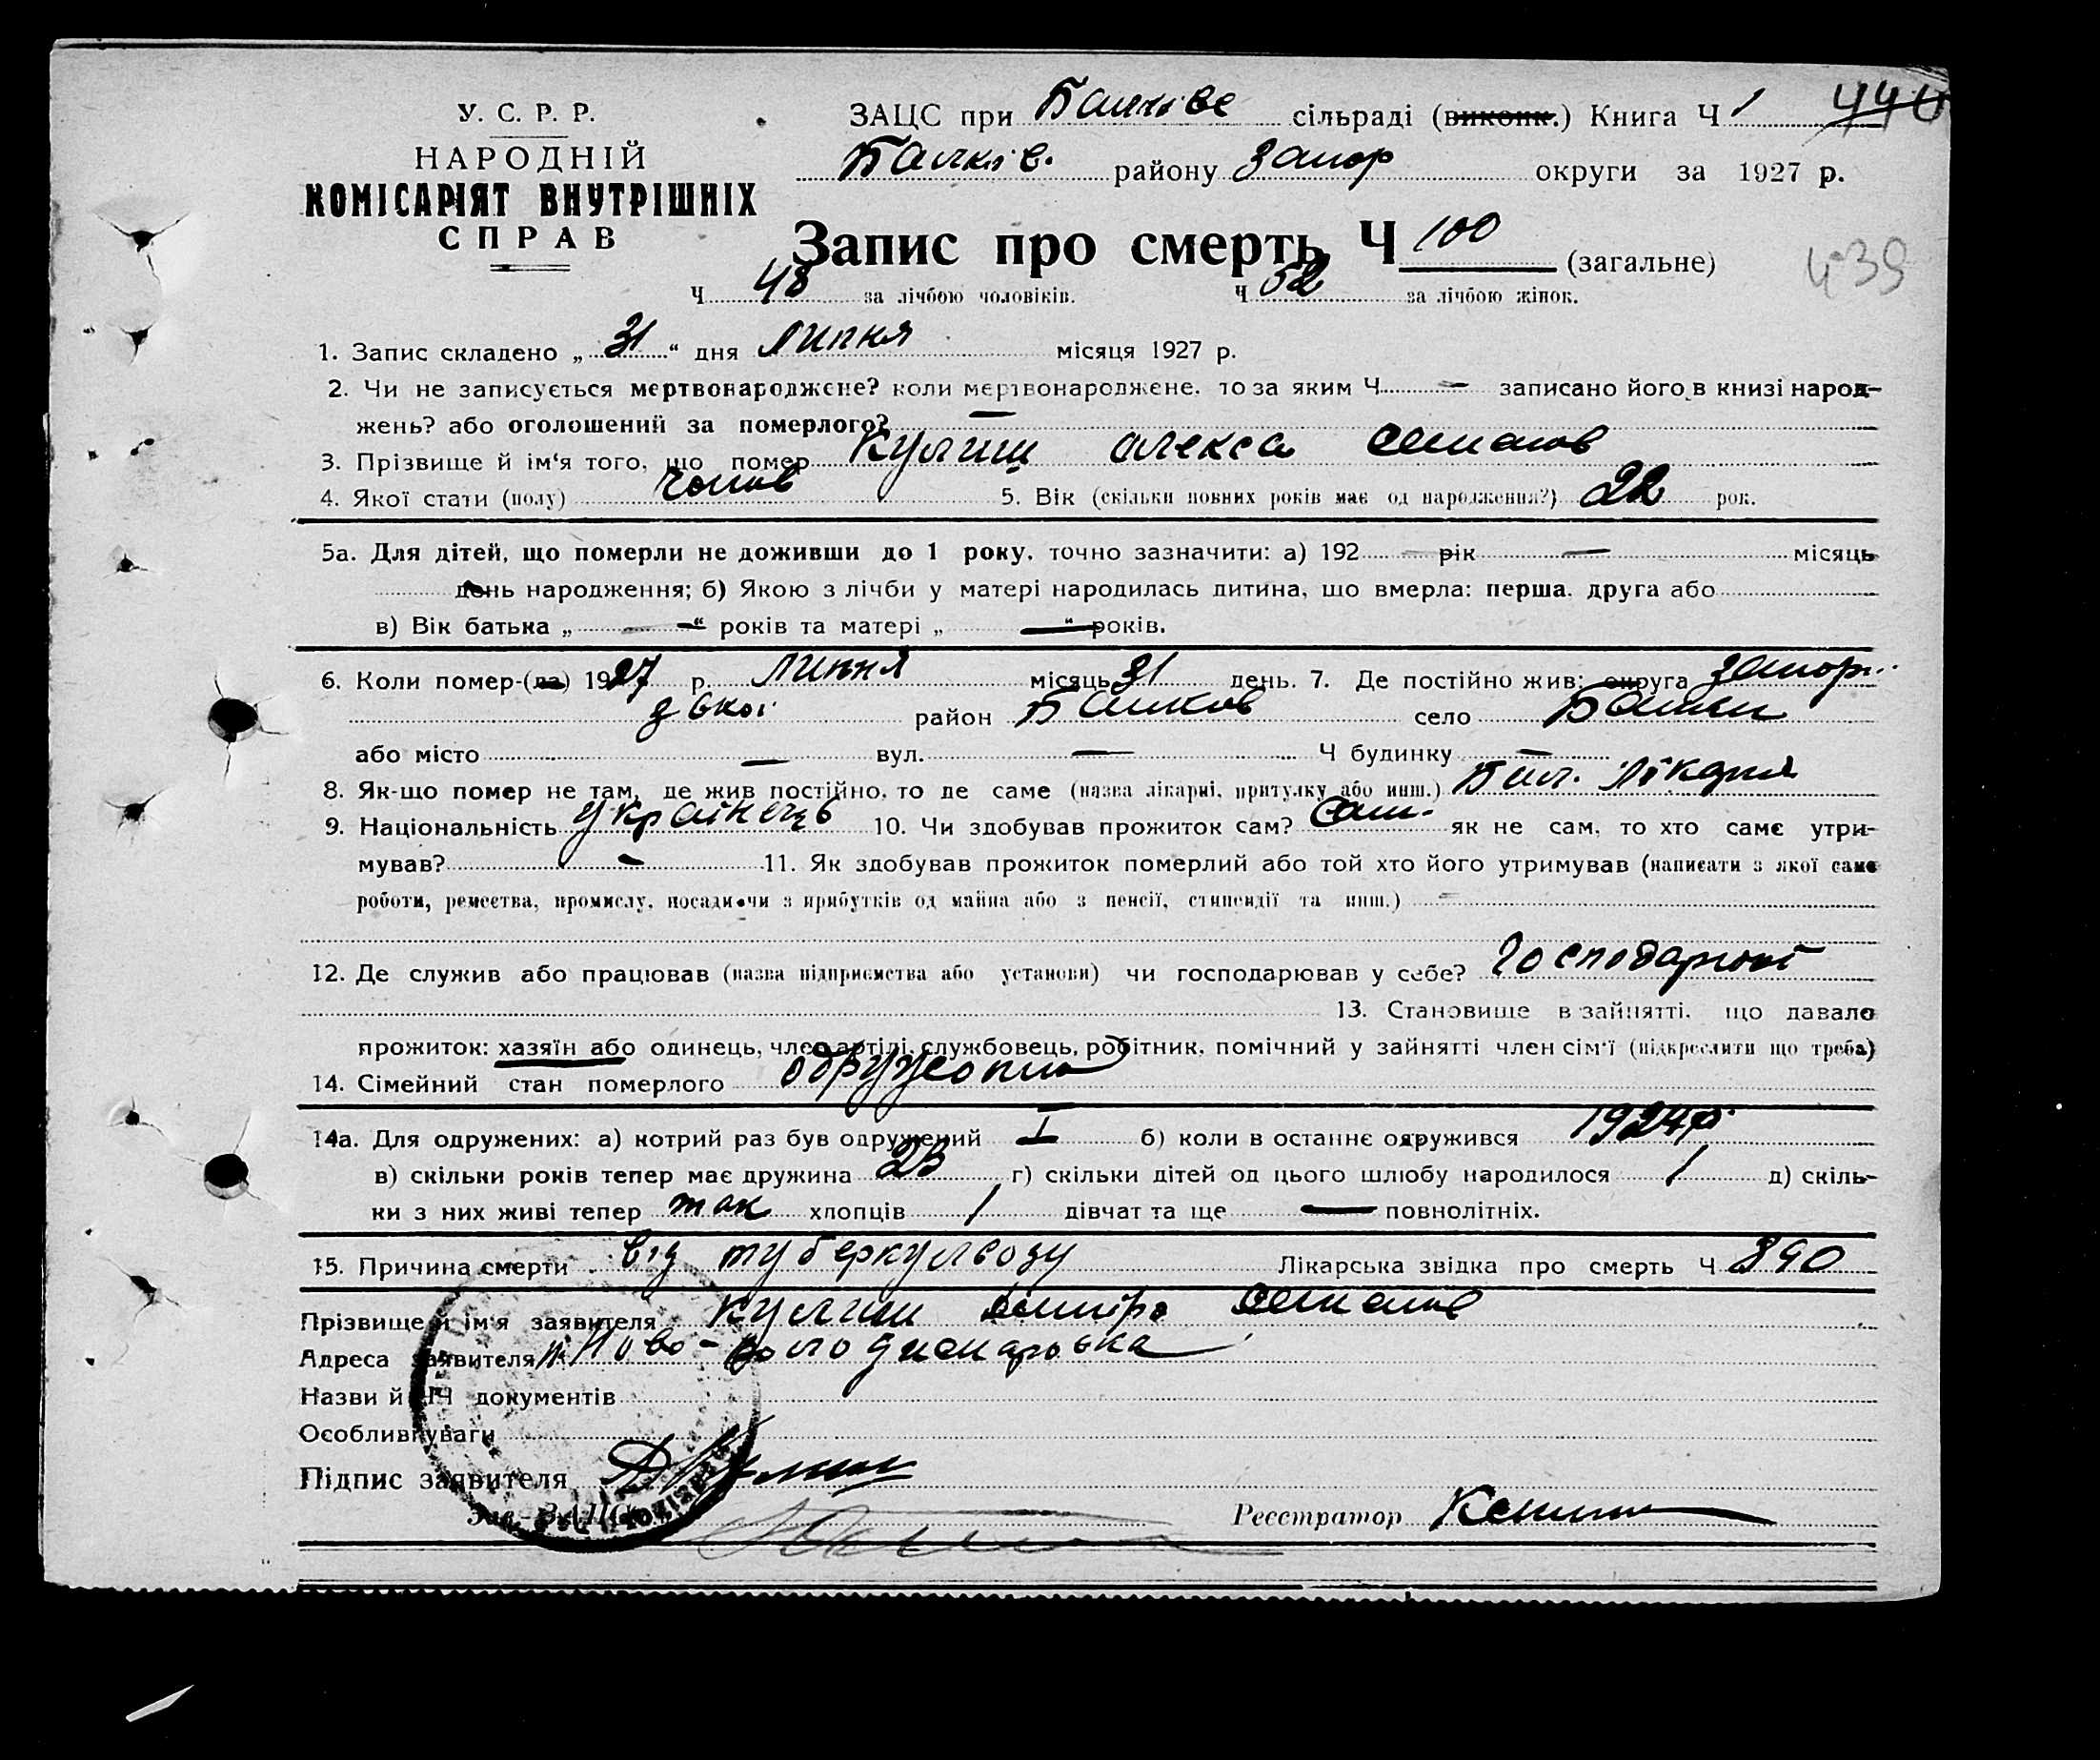 У. С. Р. Р.
НАРОДНІЙ
КОМІСАРІЯТ ВНУТРІШНІХ
СПРАВ
ЗАЦС при сільраді (виконк.) Книга Ч 1 440
Балків. району Запор округи за 1927 р.
Запис про смерть Ч 100 (загальне)
439
Ч 48 за лічбою чоловіків. Ч 52 за лічбою жінок.
1. Запис складено „ 31 “ дня Липня місяця 1927 р.
2. Чи не записується мертвонароджене? коли мертвонароджене, то за яким Ч — записано його в книзі народ-
жень? або оголошений за померлого? —
3. Прізвище й ім'я того, що помер Кулиш Олекса Степанов
4. Якої стати (полу) Чолов 5. Вік (скільки повних років має од народження?) 22 рок.
5а. Для дітей, що померли не доживши до 1 року, точно зазначити: а) 192 — рік — місяць
день народження; б) Якою з лічби у матері народилась дитина, що вмерла: перша, друга або
в) Вік батька „ — “ років та матері „ — “ років.
6. Коли помер-(ла) 1927 р. Липня місяць 31 день. 7. Де постійно жив: округа Запорі
зької район Балков село Балки
або місто — вул. — Ч будинку —
8. Як-що помер не там, де жив постійно, то де саме (назва лікарні, притулку або инш.) Бал. Лікарня
9. Національність Українець 10. Чи здобував прожиток сам? Сам. як не сам, то хто саме утри-
мував? — 11. Як здобував прожиток померлий або той хто його утримував (написати з якої саме
роботи, ремества, промислу, посади чи з прибутків од майна або з пенсії, стипендії та инш.) —
12. Де служив або працював (назва підприємства або установи) чи господарював у себе?
13. Становище в зайнятті, що давало
прожиток: хазяїн або одинець, член артілі, службовець, робітник, помічний у зайнятті член сім'ї (підкреслити що треба)
14. Сімейний стан померлого
14а. Для одружених: а) котрий раз був одружений I б) коли в останнє одружився 1924 р
в) скільки років тепер має дружина 23 г) скільки дітей од цього шлюбу народилося 1 д) скіль-
ки з них живі тепер так хлопців 1 дівчат та ще — повнолітніх.
15. Причина смерти від туберкульозу Лікарська звідка про смерть Ч 890
Прізвище й ім'я заявителя Кулиш Дмитро Степанов
Адреса заявителя
Назви й ЧЧ документів
Особливі уваги
Підпис заявителя Д Кулиш
Зав. ЗАЦС Реєстратор